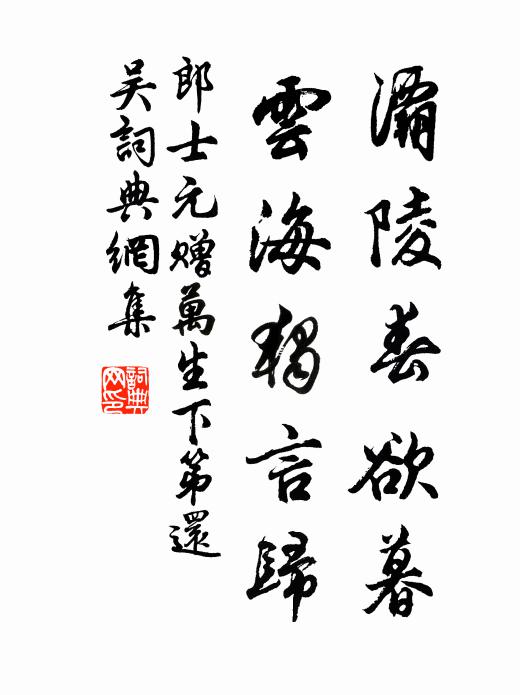 灞陵春欲暮
雲海獨言歸
郎士元赠萬生下第還
吴詞典網集
詞典
网印